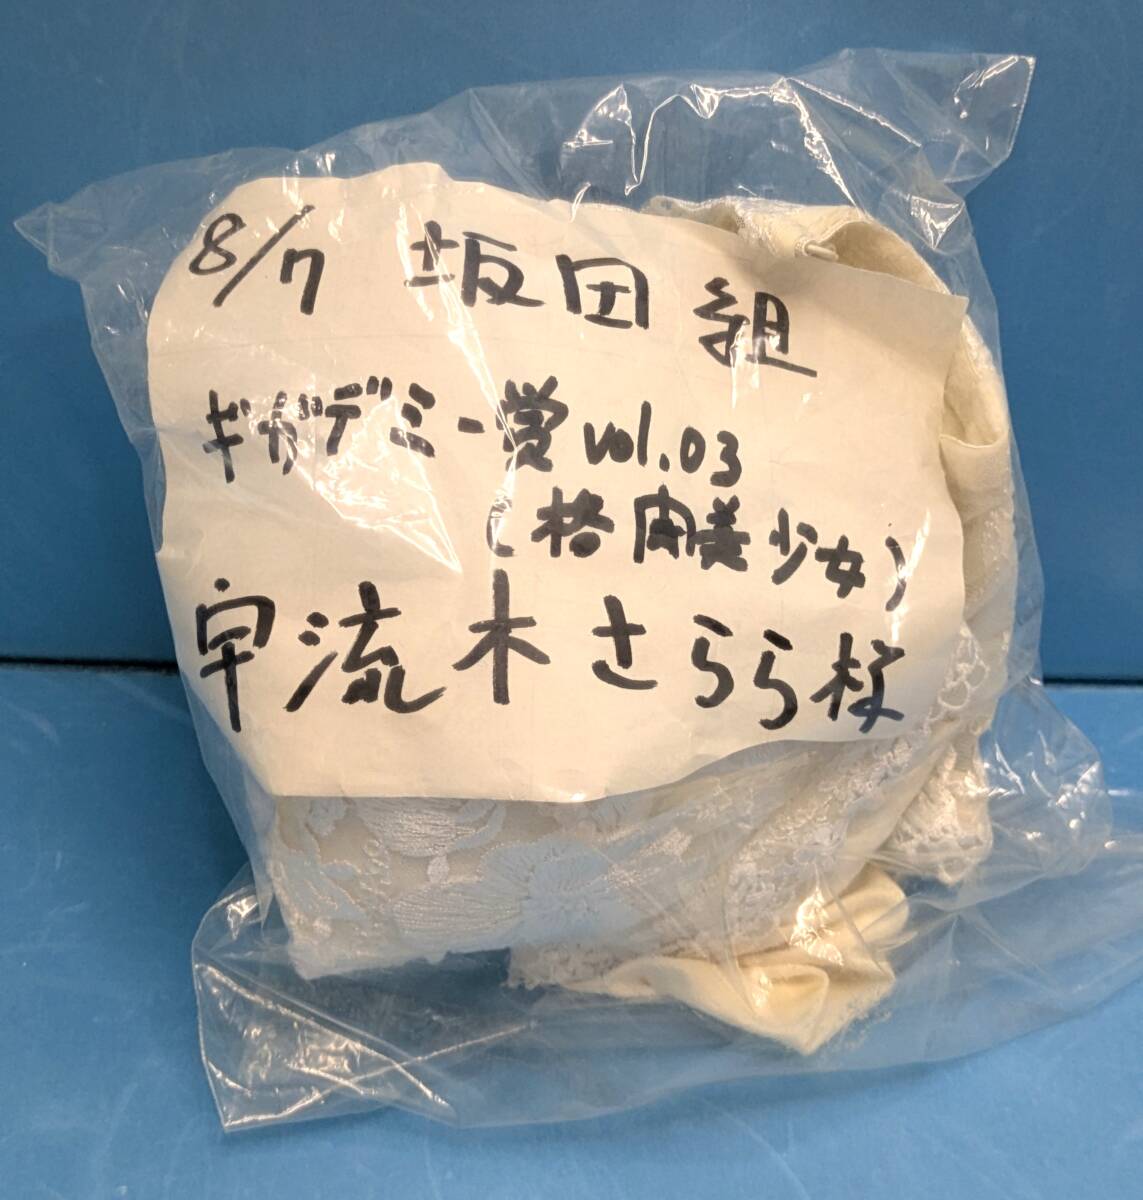 8/7 坂田組
ギガデミー賞vol.03
(格闘美少女)
宇流木さらら様